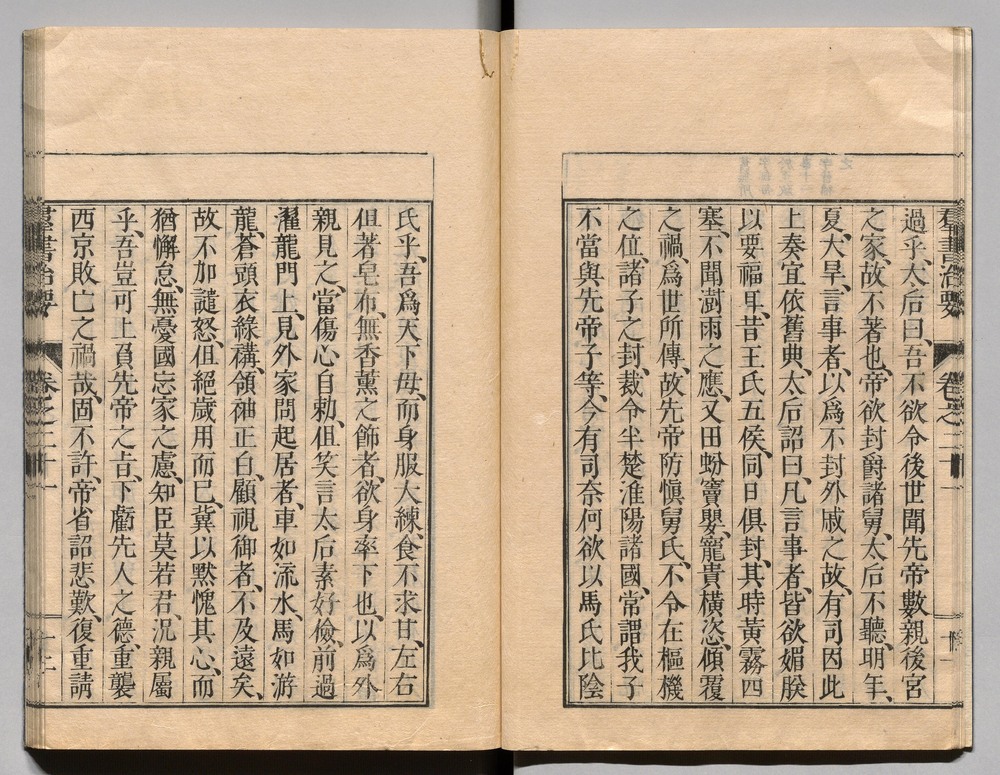 羣書治要 卷之二十一
過乎、太后曰、吾不欲令後世聞先帝數親後宮
之家、故不著也、帝欲封爵諸舅、太后不聽、明年、
夏、大旱、言事者、以爲不封外戚之故、有司因此
上奏宜依舊典、太后詔曰、凡言事者、皆欲媚朕
以要福耳、昔王氏五侯、同日俱封、其時黃霧四
塞、不聞澍雨之應、又田蚡竇嬰、寵貴橫恣、傾覆
之禍、爲世所傳、故先帝防愼舅氏、不令在樞機
之位、諸子之封、裁令半楚淮陽諸國、常謂我子
不當與先帝子等、今有司奈何欲以馬氏比陰
氏乎、吾爲天下母、而身服大練、食不求甘、左右
但著皂布、無香薰之飾者、欲身率下也、以爲外
親見之、當傷心自勅、但笑言太后素好儉、前過
濯龍門上、見外家問起居者、車如流水、馬如游
龍、蒼頭衣綠褠、領袖正白、顧視御者、不及遠矣、
故不加譴怒、但絕歲用而已、冀以默愧其心、而
猶懈怠、無憂國忘家之慮、知臣莫若君、況親屬
乎、吾豈可上負先帝之旨、下虧先人之德、重襲
西京敗亡之禍哉、固不許、帝省詔悲歎、復重請
羣書治要 卷之二十一